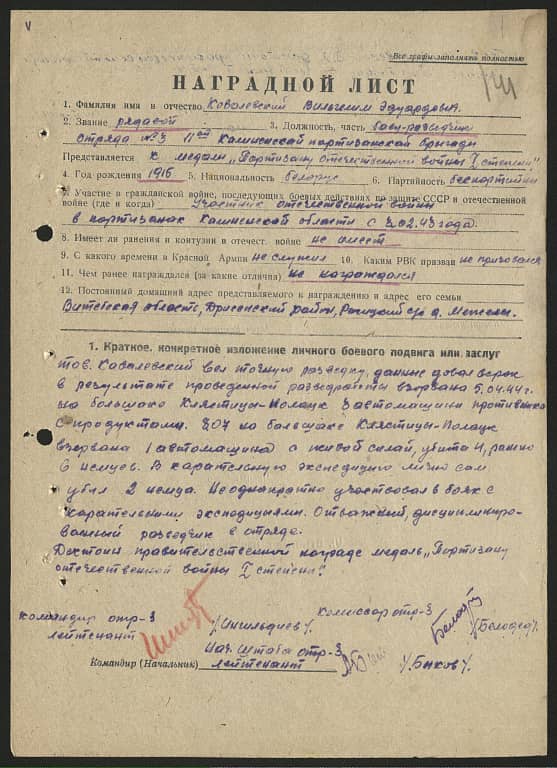 Все графы заполнять полностью
НАГРАДНОЙ ЛИСТ
1. Фамилия имя и отчество Ковалевский Вильгельм Эдуардович
2. Звание рядовой 3. Должность, часть боец-разведчик
отряда №3 11ой Калининской партизанской бригады
Представляется к медали „Партизану отечественной войны I степени"
4. Год рождения 1916 5. Национальность белорус 6. Партийность беспартийный
7. Участие в гражданской войне, последующих боевых действиях по защите СССР и отечественной
войне (где и когда) Участник отечественной войны
в партизанах Калининской области с 02.43 года.
8. Имеет ли ранения и контузии в отечест. войне не имеет
9. С какого времени в Красной Армии не служил 10. Каким РВК призван не призывался
11. Чем ранее награждался (за какие отличия) не награждался
12. Постоянный домашний адрес представляемого к награждению и адрес его семьи
Витебская область, Дрисенский район, с/с д.
1. Краткое, конкретное изложение личного боевого подвига или заслуг
тов. Ковалевский вел точную разведку, данные
в результате проведенной разведработы взорвана 5.04.44г.
на большаке Клястицы-Полоцк автомашина противника
с продуктами. на большаке Клястицы-Полоцк
взорвана 1 автомашина с живой силой, убито 4, ранено
6 немцев. В карательную экспедицию лично сам
убил 2 немца. Неоднократно участвовал в боях с
карательными экспедициями. Отважный, дисциплиниро-
ванный разведчик в отряде.
Достоин правительственной награде медаль „Партизану
отечественной войны I степени".
Командир отр-3
лейтенант
Комиссар отр-3
Нач. штаба отр-3
Командир (Начальник) лейтенант /Быков/